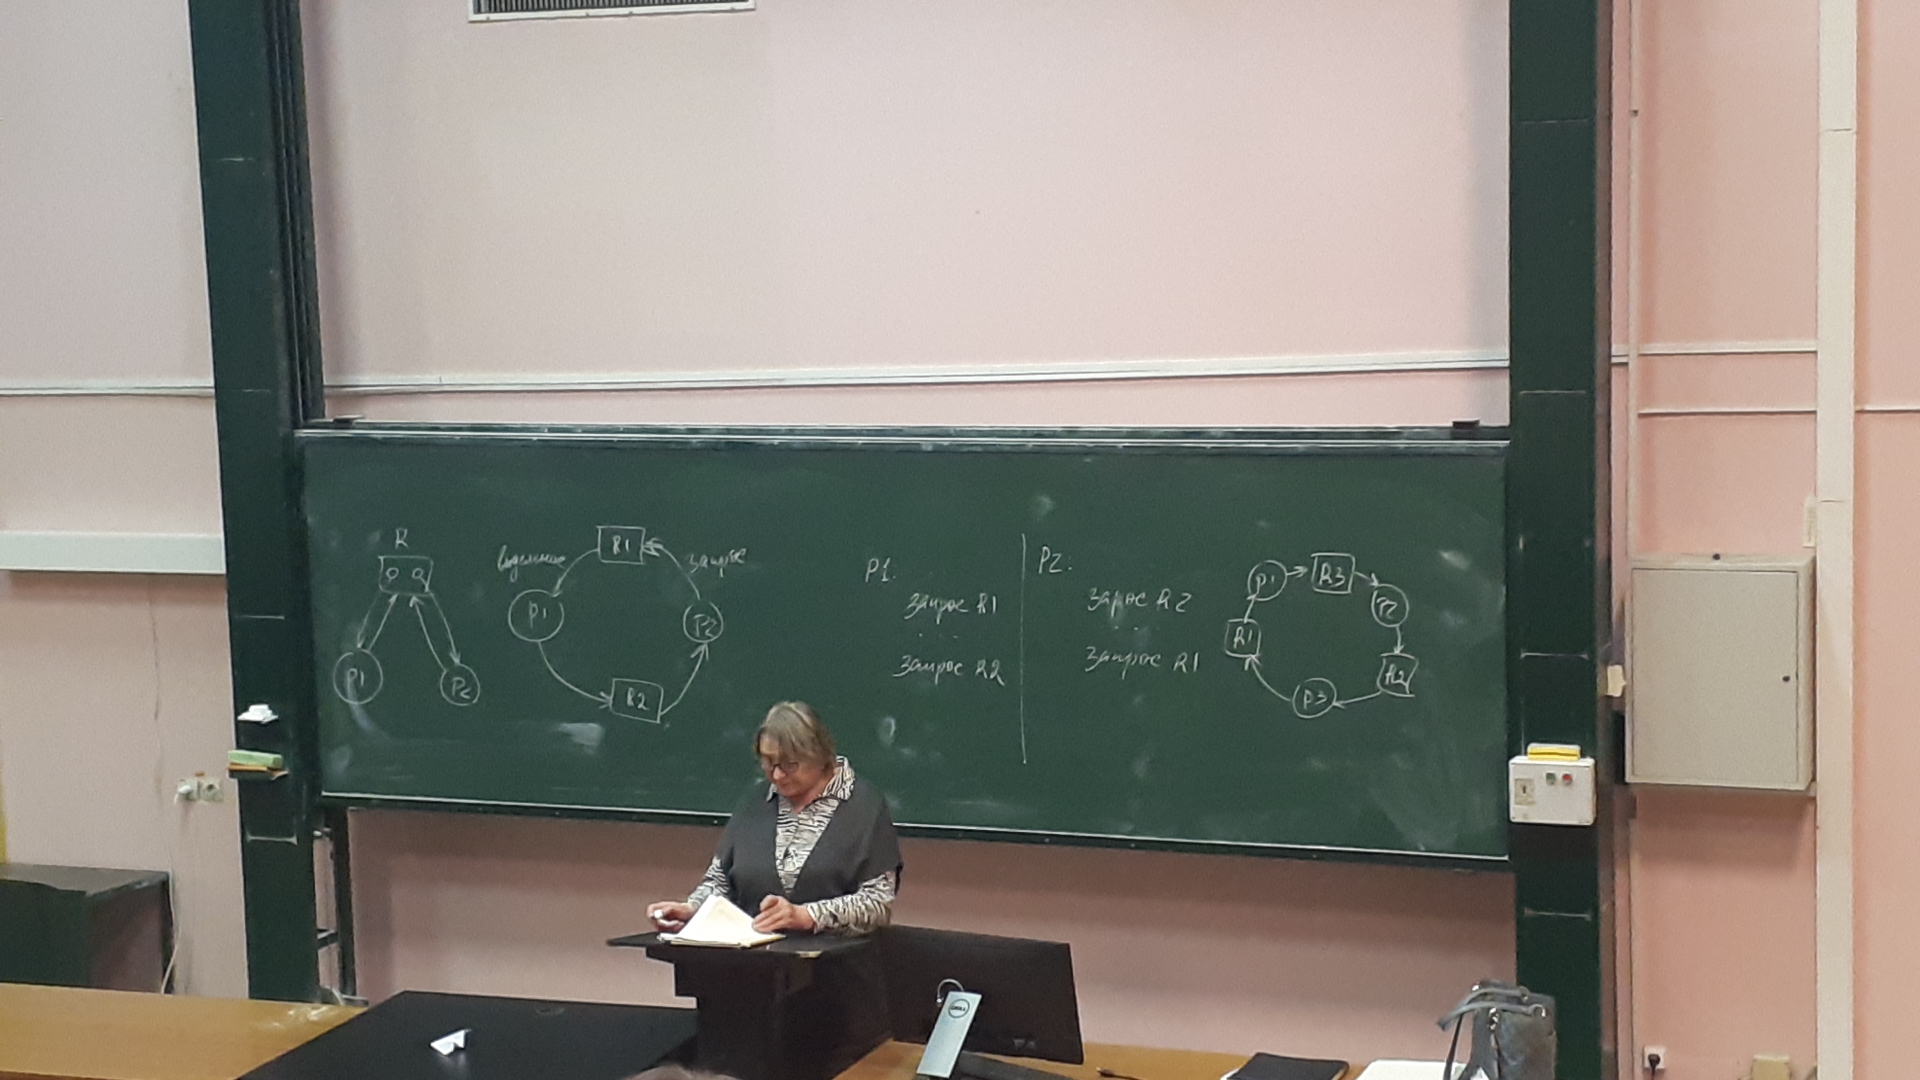 R
P1
P2
R1
выделение
запрос
P1
P2
R2
P1:
запрос R1
. . .
запрос R2
P2:
запрос R2
. . .
запрос R1
P1
R3
P2
R1
R2
P3
DELL